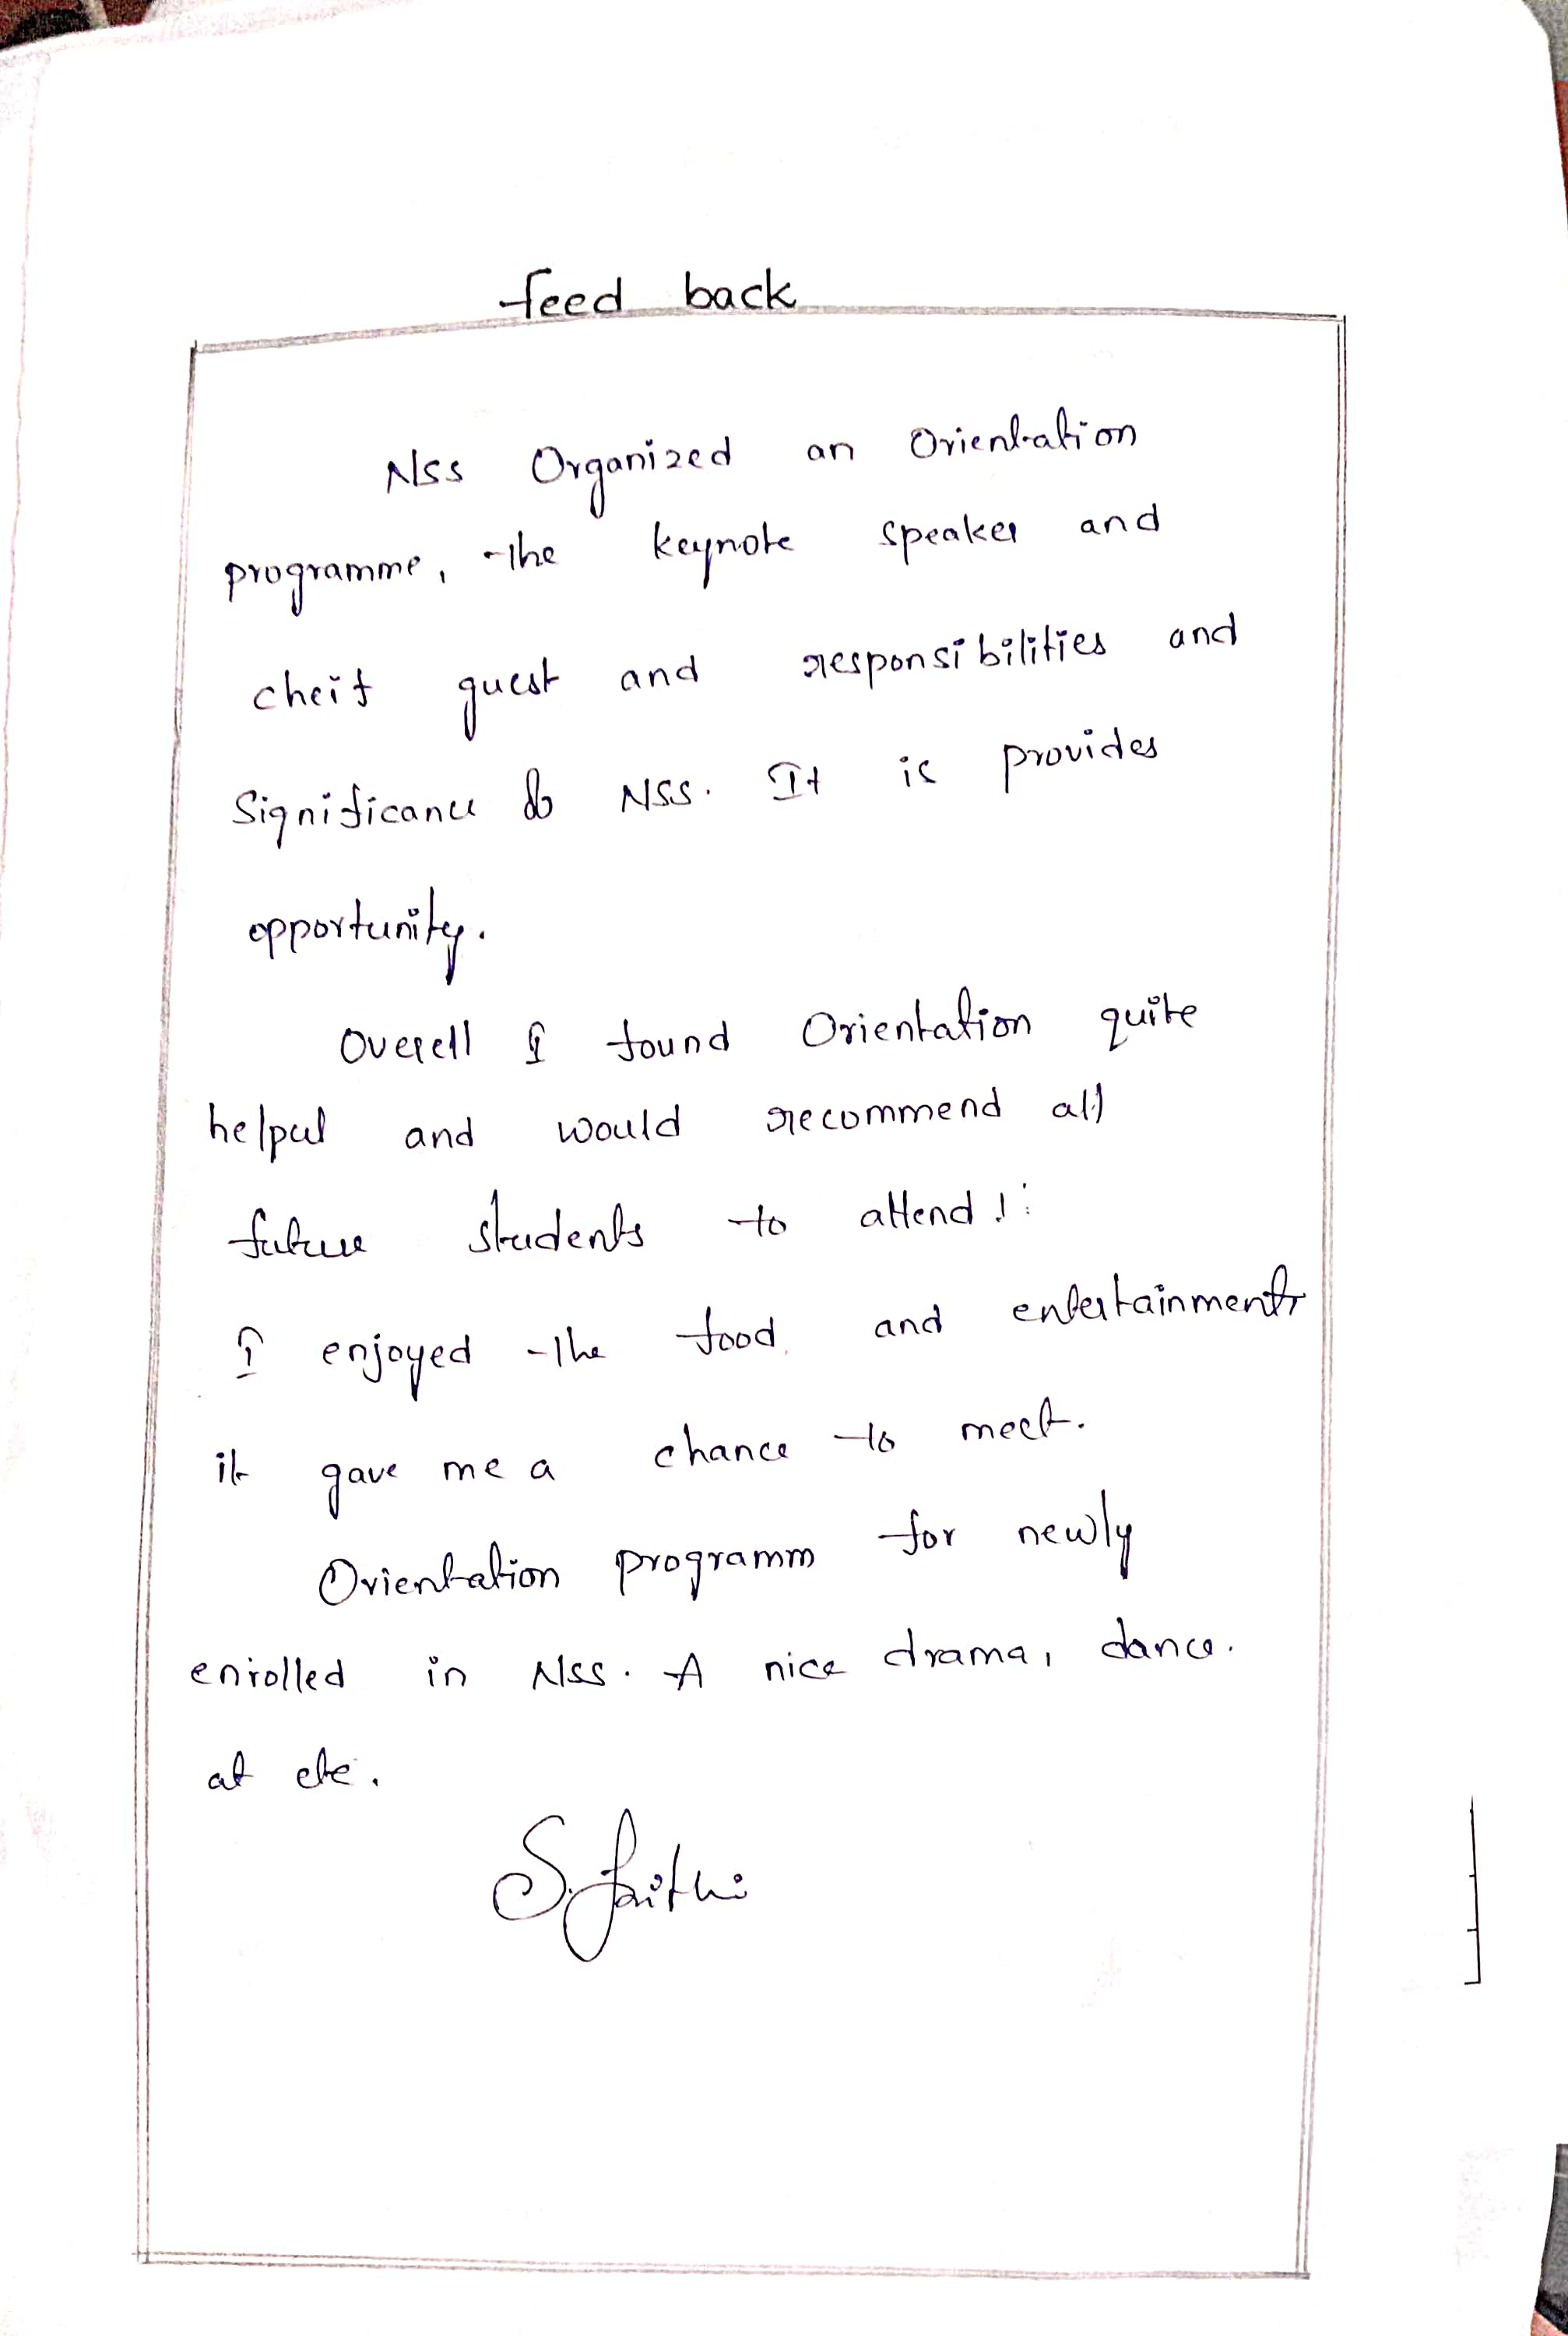 feed back
NSS Organized an Orientation
programme, the keynote speaker and
cheif guest and responsibilities and
Significance of NSS. It is provides
opportunity.
Overell I found Orientation quite
helpul and would recommend all
future students to attend !
I enjoyed the food and entertainment
it gave me a chance to meet.
Orientation programm for newly
enrolled in NSS. A nice drama, dance.
at etc.